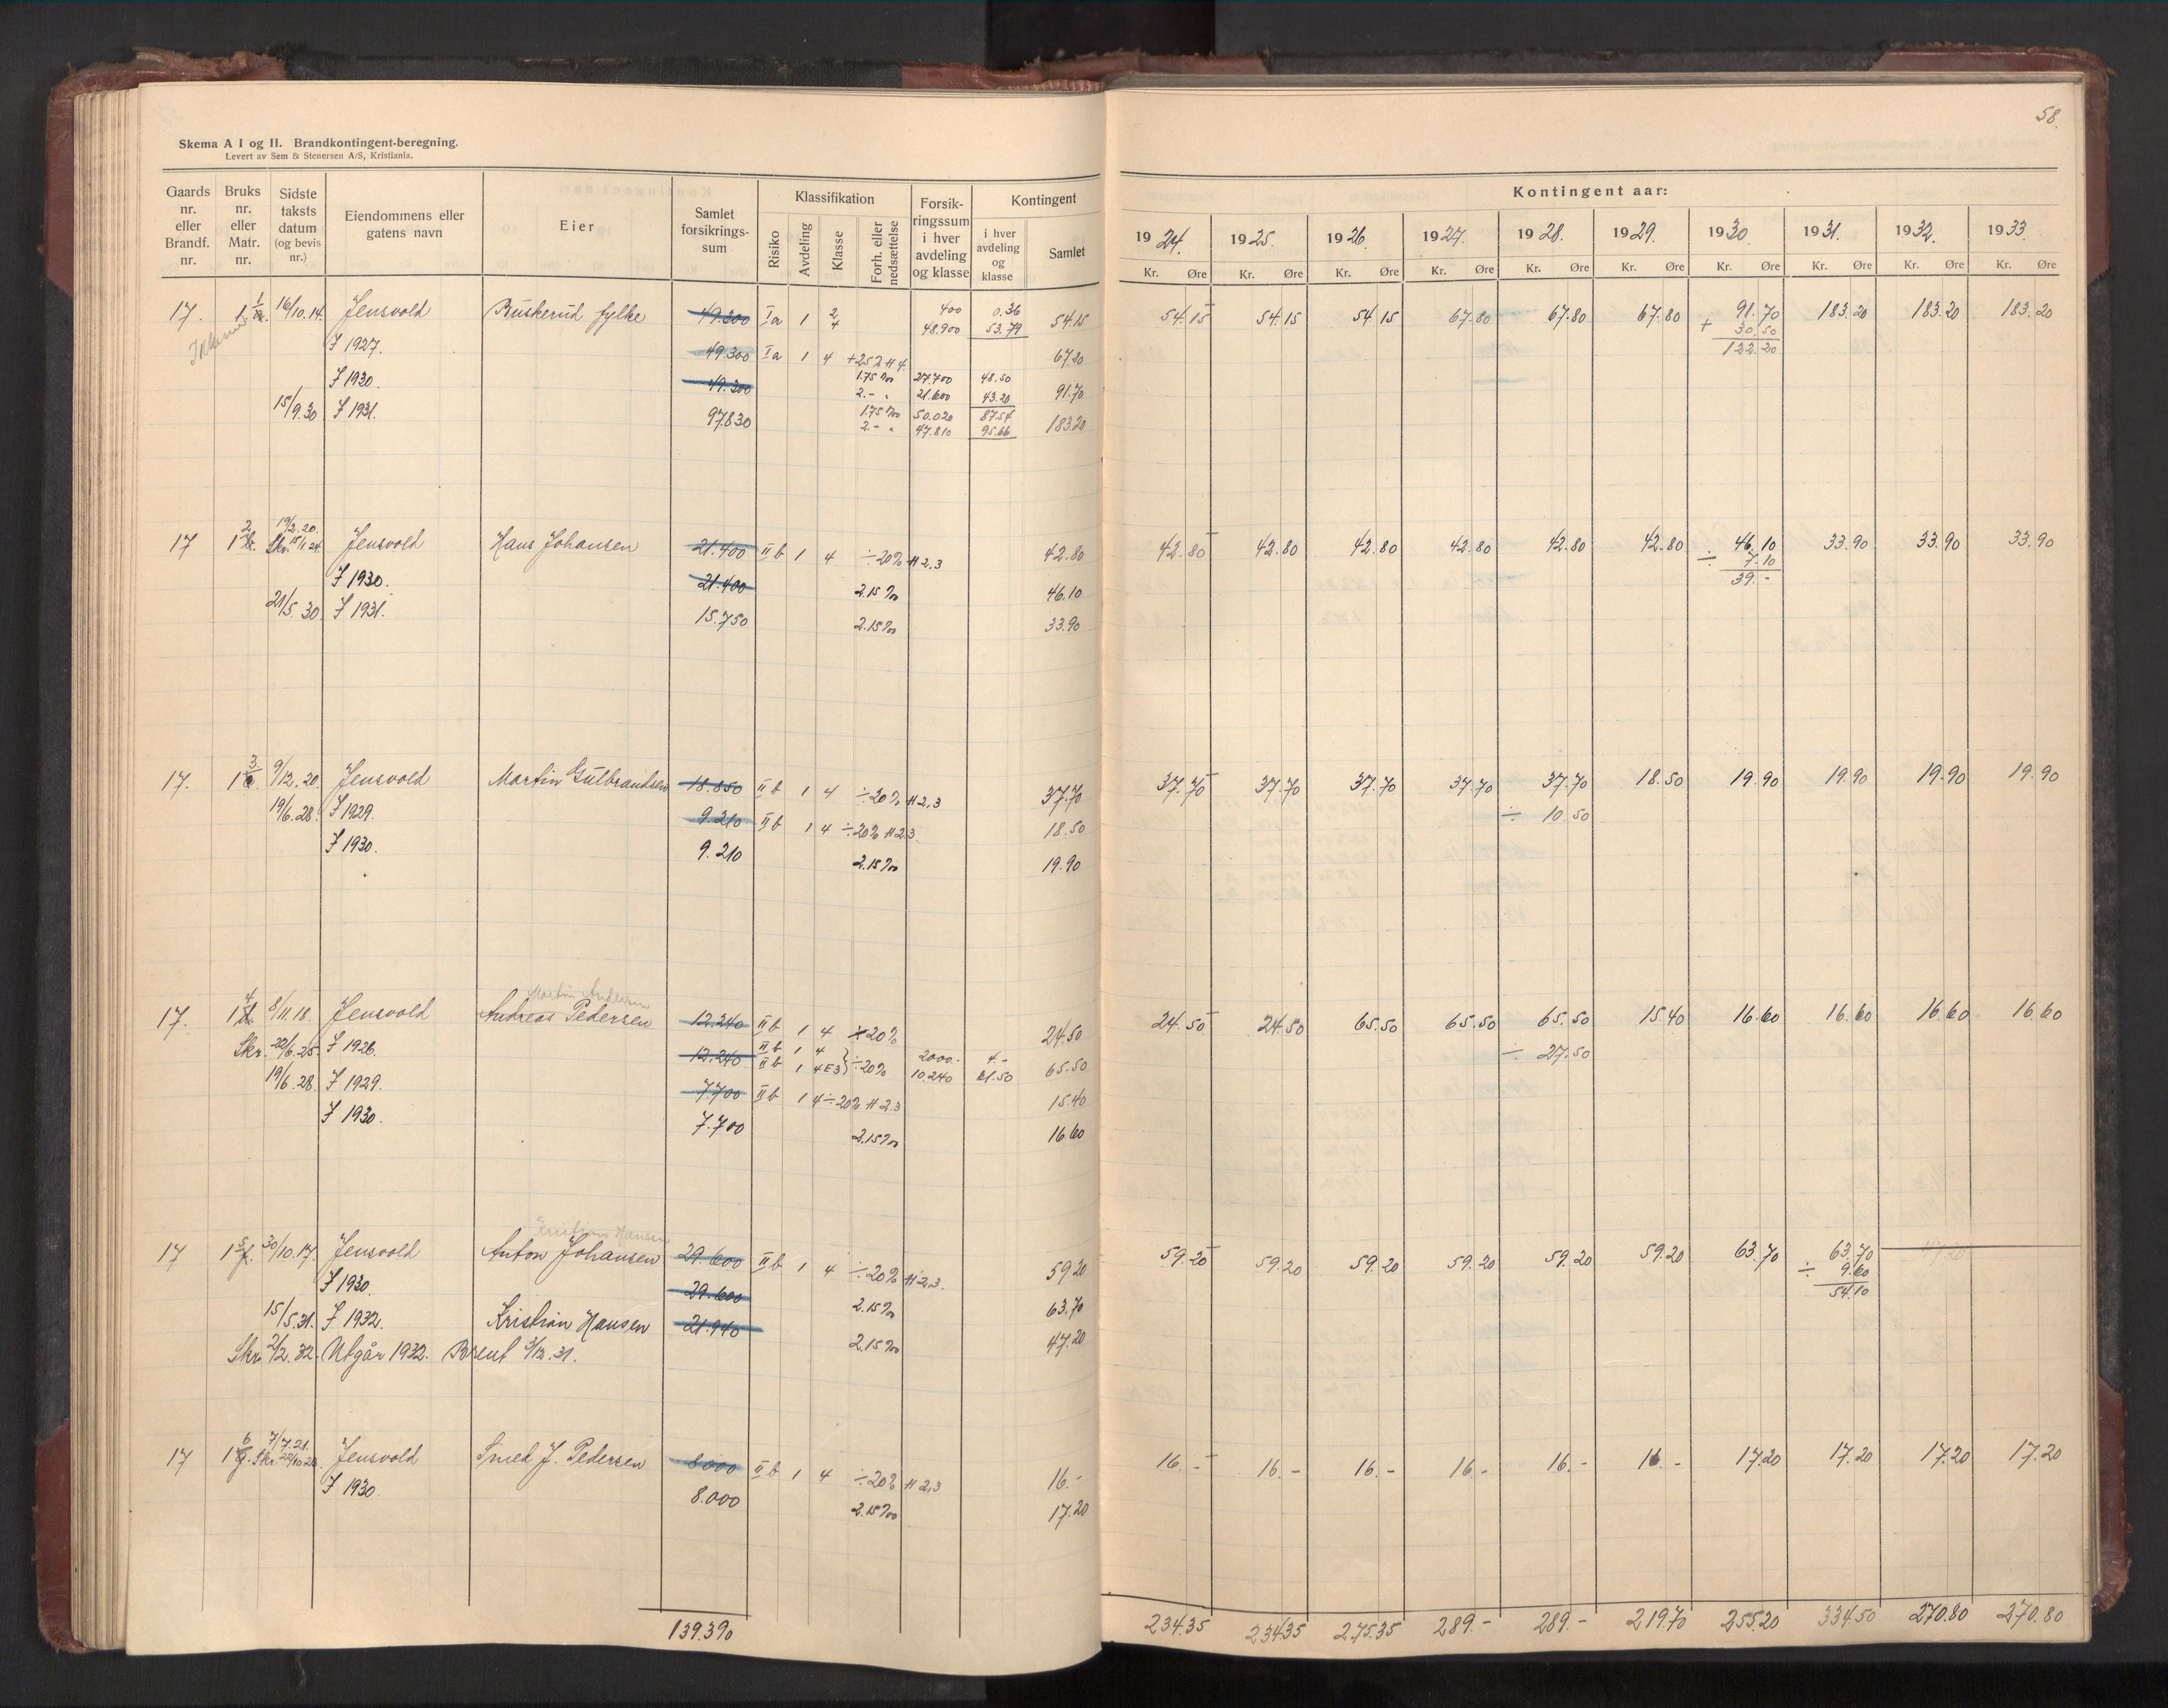 58.
Skema A I og II. Brandkontingent-beregning.
Levert av Sem & Stenersen A/S, Kristiania.
Gaards nr. eller Brandf. nr. Bruks nr. eller Matr. nr. Sidste taksts datum (og bevis nr.) Eiendommens eller gatens navn Eier Samlet forsikrings- sum Klassifikation Risiko Avdeling Klasse Forh. eller nedsættelse Forsik- ringssum i hver avdeling og klasse Kontingent i hver avdeling og klasse Samlet
Kontingent aar:
1924. 1925. 1926. 1927. 1928. 1929. 1930. 1931. 1932. 1933.
Kr. Øre Kr. Øre Kr. Øre Kr. Øre Kr. Øre Kr. Øre Kr. Øre Kr. Øre Kr. Øre Kr. Øre
17. 1 1 16/10.14. Jensvold Buskerud fylke 49.300 Ia 1 2 400 0.36
4 48.900 53.79 54.15 54.15 54.15 54.15 67.80 67.80 67.80 91.70 183.20 183.20 183.20
+ 30.50
122.20
F 1927. 49.300 Ia 1 4 +25% H 4 67.20
F 1930. 49.300 1.75‰ 27.700 48.50
2.- " 21.600 43.20 91.70
15/9.30 F 1931. 97.830 1.75‰ 50.020 87.54
2.- " 47.810 95.66 183.20
17 1 2 19/2.20. Skr. 15/1 24. Jensvold Hans Johansen 21.400 IIb 1 4 ÷20% H 2,3 42.80 42.80 42.80 42.80 42.80 42.80 42.80 46.10 33.90 33.90 33.90
÷ 7.10
39.-
F 1930. 21.400 2.15‰ 46.10
21/5.30. F 1931. 15.750 2.15‰ 33.90
17. 1 3 9/12.20 Jensvold Martin Gulbrandsen 18.850 IIb 1 4 ÷20% H 2,3 37.70 37.70 37.70 37.70 37.70 37.70 18.50 19.90 19.90 19.90 19.90
÷ 10.50
19/6.28. F 1929. 9.210 IIb 1 4 ÷20% H 2.3. 18.50
F 1930. 9.210 2.15‰ 19.90
Martin Andersen
17. 1 4 8/11.18. Jensvold Andreas Pedersen 12.240 IIb 1 4 20% 24.50 24.50 24.50 65.50 65.50 65.50 15.40 16.60 16.60 16.60 16.60
÷ 27.50
Skr. 22/6.25. F 1926. 12.240 IIb 1 4 2000.- 4.-
IIb 1 4 E3} ÷20% 10.240 61.50 65.50
19/6.28. F 1929. 7.700 IIb 1 4 ÷20% H 2.3 15.40
F 1930. 7.700 2.15‰ 16.60
Kristian Hansen
17 1 5 f. 30/10.17. Jensvold Anton Johansen 29.600 IIb 1 4 ÷20% H 2,3. 59.20 59.20 59.20 59.20 59.20 59.20 59.20 63.70 63.70
÷ 9.60
54.10
F 1930. 29.600 2.15‰ 63.70
15/5.31. F 1932. Kristian Hansen 21.940 2.15‰ 47.20
Skr. 2/2.32. Utgår 1932. Brent 3/12.31.
17 1 6 g. 7/7.21. Skr. Jensvold Smed J. Pedersen 8.000 IIb 1 4 ÷20% H 2,3 16.- 16.- 16.- 16.- 16.- 16.- 16.- 17.20 17.20 17.20 17.20
F 1930. 8.000 2.15‰ 17.20
139.390 234.35 234.35 275.35 289.- 289.- 219.70 255.20 334.50 270.80 270.80